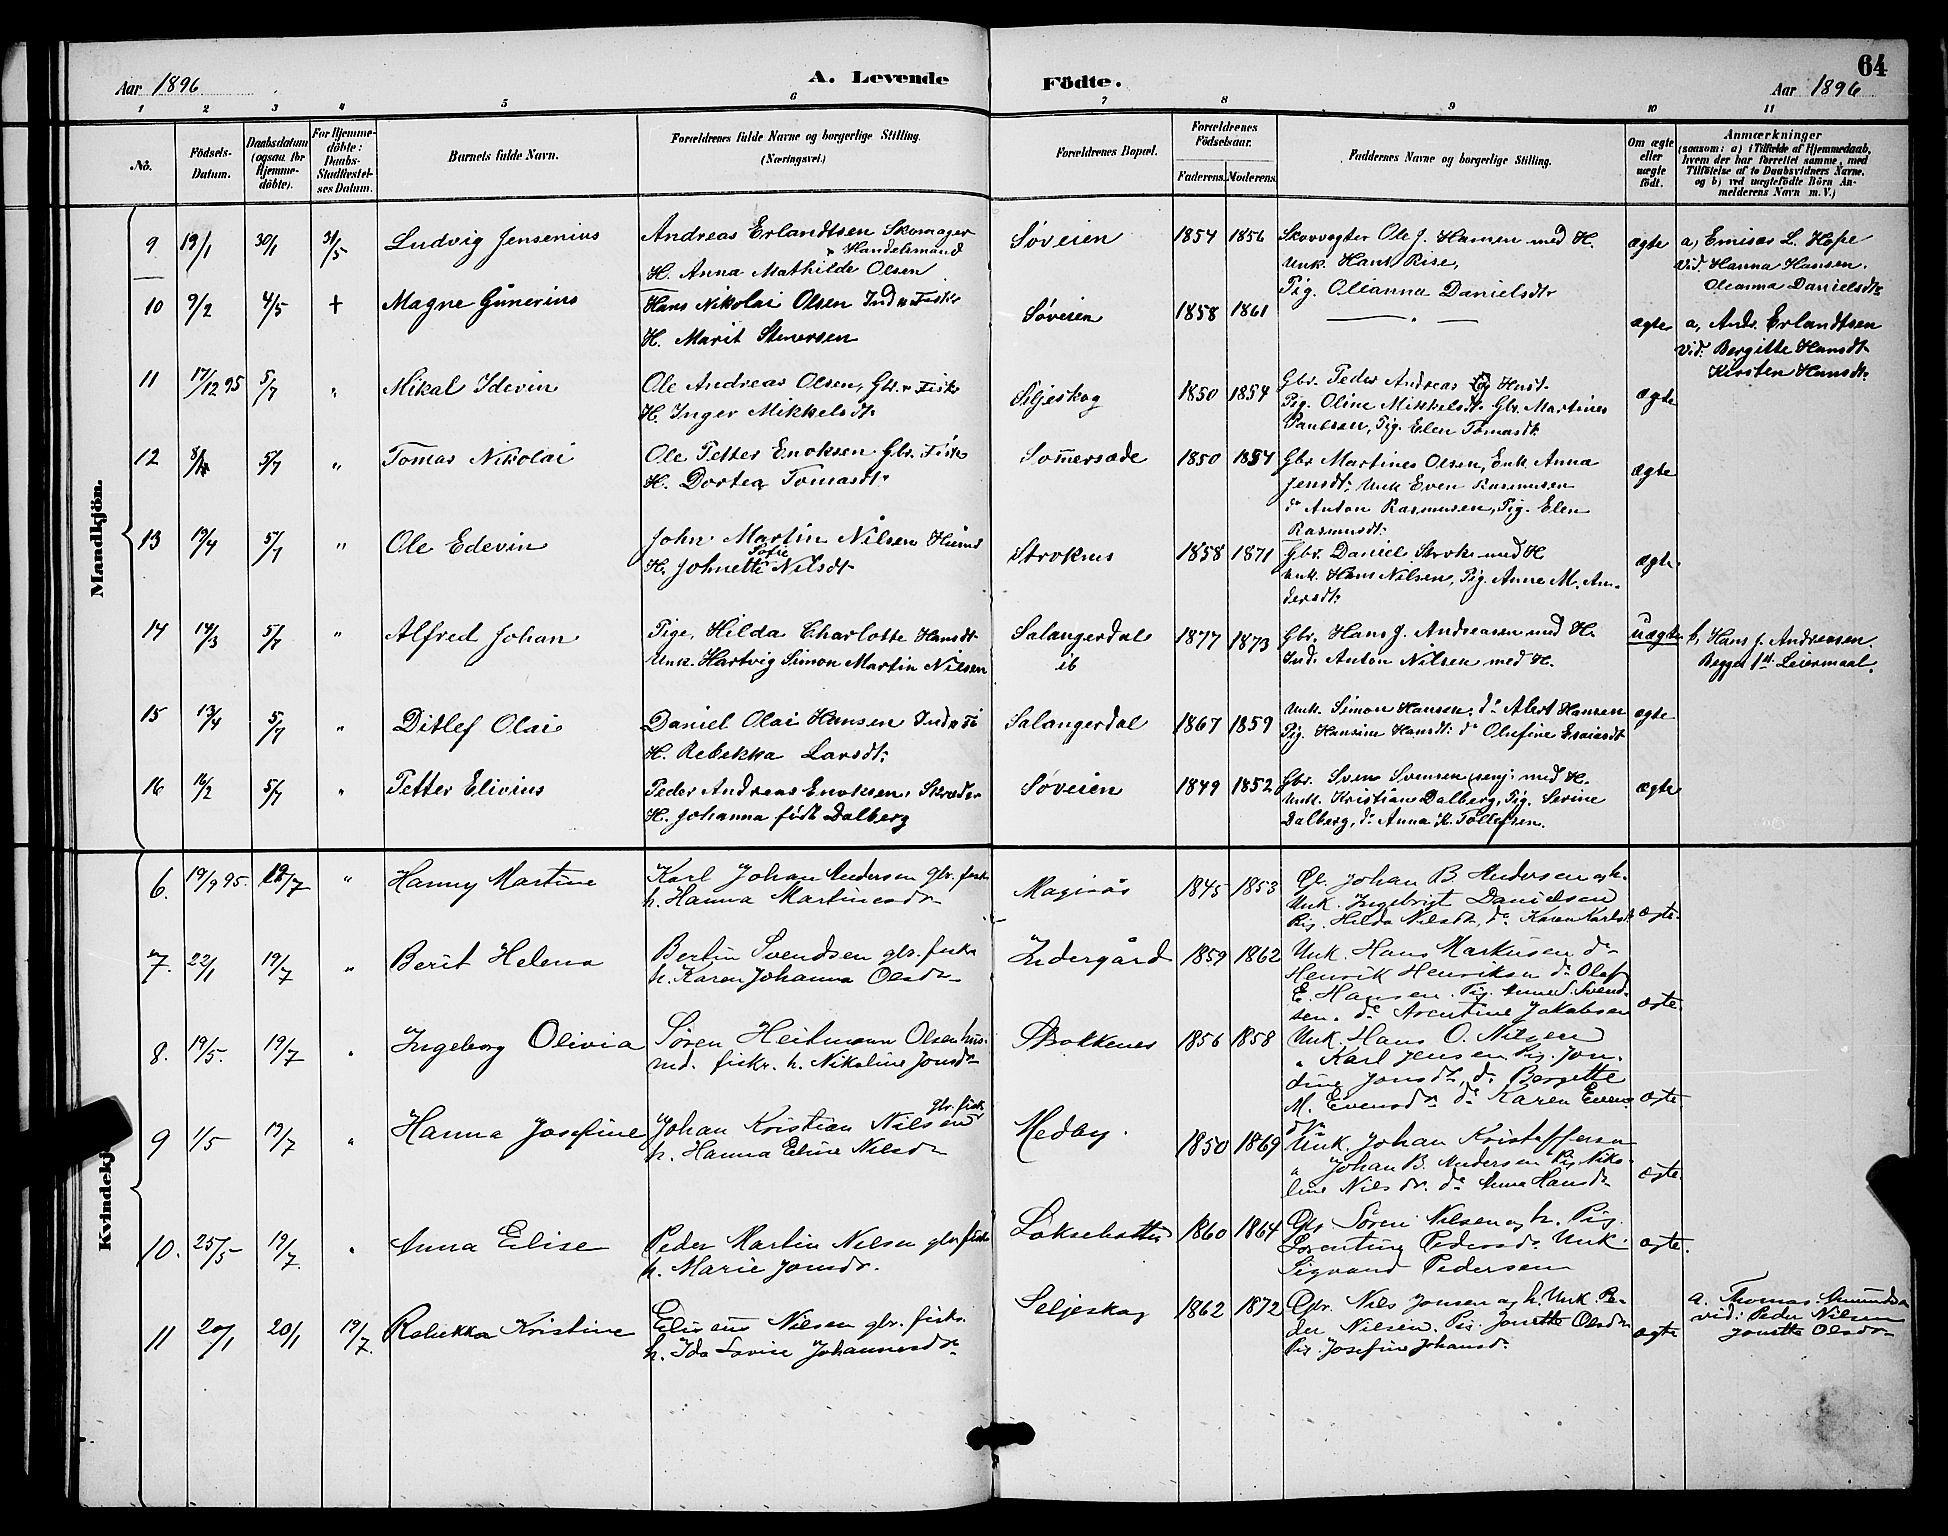 64
Aar 1896
A. Levende
Födte.
Aar 1896
1 2 3 4 5 6 7 8 9 10 11
No.
Födsels-
Datum.
Daabsdatum
(ogsaa for
Hjemme-
döbte).
For Hjemme-
döbte:
Daabs-
Stadfæstel-
ses Datum.
Barnets fulde Navn.
Forældrenes fulde Navne og borgerlige Stilling.
(Næringsvei.)
Forældrenes Bopæl.
Forældrenes
Födselsaar.
Faderens. Moderens.
Faddernes Navne og borgerlige Stilling.
Om ægte
eller
uægte
födt.
Anmærkninger
(saasom: a) i Tilfælde af Hjemmedaab,
hvem der har forrettet samme, med
Tilföielse af to Daabsvidners Navne,
og b) ved uægtefödte Börn An-
melderens Navn m. V.)
Mandkjön.
9 19/1 30/1 31/5 Ludvig Jensenius
Andreas Erlandtsen Skomager
& Handelsmand
H. Anna Mathilde Olsen
Søveien 1854 1856
Skovvogter Ole J. Hansen med H.
Unk. Hans Rise,
Pig. Oleanna Danielsdtr
ægte
a, Emisær L. Hope
vid. Hanna Hansen.
Oleanna Danielsdtr
10 9/2 4/5 + Magne Günerius
Hans Nikolai Olsen Ind. & Fisker
H. Marit Stenersen
Søveien 1858 1861
— " —
ægte
a, Andr. Erlandtsen
vid. Bergitte Hansdtr
Kirsten Hansdtr
11 17/12 95 5/7 " Mikal Idevin
Ole Andreas Olsen, Gbr. & Fisker
H. Inger Mikkelsdtr
Siljeskog 1850 1854
Gbr. Peder Andreas og Hust.
Pig. Oline Mikkelsdtr Gbr. Martines
Paulsen, Pig. Elen Tomasdtr
ægte
12 5/7 " Tomas Nikolai
Ole Petter Enoksen Gbr. Fisker
H. Dortea Tomasdtr
Sommersæde 1850 1854
Gbr Martines Olsen, Enk Anna
Jensdtr, Unk Even Rasmusen
do Anton Rasmusen, Pig. Elen
Rasmusdtr
ægte
13 19/4 5/7 " Ole Edevin
John Martin Nilsen Husmd
H. Johnette Sofie Nilsdtr
Stroknes 1858 1871
Gbr. Daniel Stroks med H
Unk. Hans Nilsen, Pig. Anne M. An-
dersdtr
ægte
14 14/3 5/7 " Alfred Johan
Pige, Hilda Charlotte Hansdtr
Unk. Hartvig Simon Martin Nilsen
Salangerdal
ib
1877 1873
Gbr. Hans J. Andreasen med H.
Ind. Anton Nilsen med H.
uægte
b, Hans J. Andreasen.
Begges 1ste Leiermaal.
15 13/4 5/7 " Ditlef Olai
Daniel Olai Hansen Ind & Fi
H. Rebekka Larsdtr
Salangerdal 1867 1859
Unk. Simon Hansen, do Albert Hansen
Pig. Hansine Hansdtr do Olufine Esaiasdtr
ægte
16 16/2 5/7 " Petter Elivius
Peder Andreas Enoksen, Skræder
H. Johanna født Dalberg
Søveien 1849 1852
Gbr. Sven Svensen senj. med H.
Unk. Kristian Dalberg, Pig. Serine
Dalberg, do Anna K. Tollefsen.
ægte
Kvindekj
6. 19/9 95. 19/7 " Hanny Martine
Karl Johan Andersen gbr. fisk.
h. Hanna Martinesdr
Maginås 1845 1853
Gb. Johan B. Andersen og h.
Unk. Ingebrigt Danielsen
Pig. Hilda Nilsdtr, do Karen Karlsdtr
ægte.
7. 22/1 19/7 " Berit Helena
Bertin Svendsen gbr. fisker
h. Karen Johanna Olsdr
Indergård 1859 1862
Unk. Hans Markusen do
Henrik Henriksen do Olaf
E. Hansen. Pig. Anne S. Svend-
sen. do Arentine Jakobsen
ægte.
8. 19/5. 19/7 " Ingeborg Olivia
Søren Heitmann Olsen hus-
md. fisker. h. Nikoline Jonsdr
Strokkenes 1856 1858
Unk. Hans O. Nilsen
" Karl Jensen Pig. Jon-
dine Jonsdtr, do Bergitte
M. Evensdr do Karen Evens-
dr
ægte
9 1/5 19/7 " Hanna Josefine
Johan Kristian Nilsen gbr. fisk.
h. Hanna Eline Nilsdr
Medby. 1850 1869
Unk. Johan Kristoffersen
" Johan B. Andersen Pig Niko-
line Nilsdr. do Anna Hansdr
ægte.
10. 25/5 19/7. " Anna Elise
Peder Martin Nilsen gbr fisk.
h. Marie Jonsdr.
Løksebotten 1860 1864
Gbr Sören Nilsen og h. Pig.
Lorentine Pedersdr Unk.
Sigvand Pedersen
ægte.
11 20/1 20/1 19/7. Rebekka Kristine
Eliseus Nilsen gbr. fisk.
h. Ida Lovise Johannesdr
Seljeskog 1862 1872
Gbr. Nils Jonsen og h. Unk Pe-
der Nilsen. Pig. Jonette Olsdr
Pig. Josefine Johansdr
ægte
a. Thomas Amundsen
vid: Peder Nilsen
Jonette Olsdr